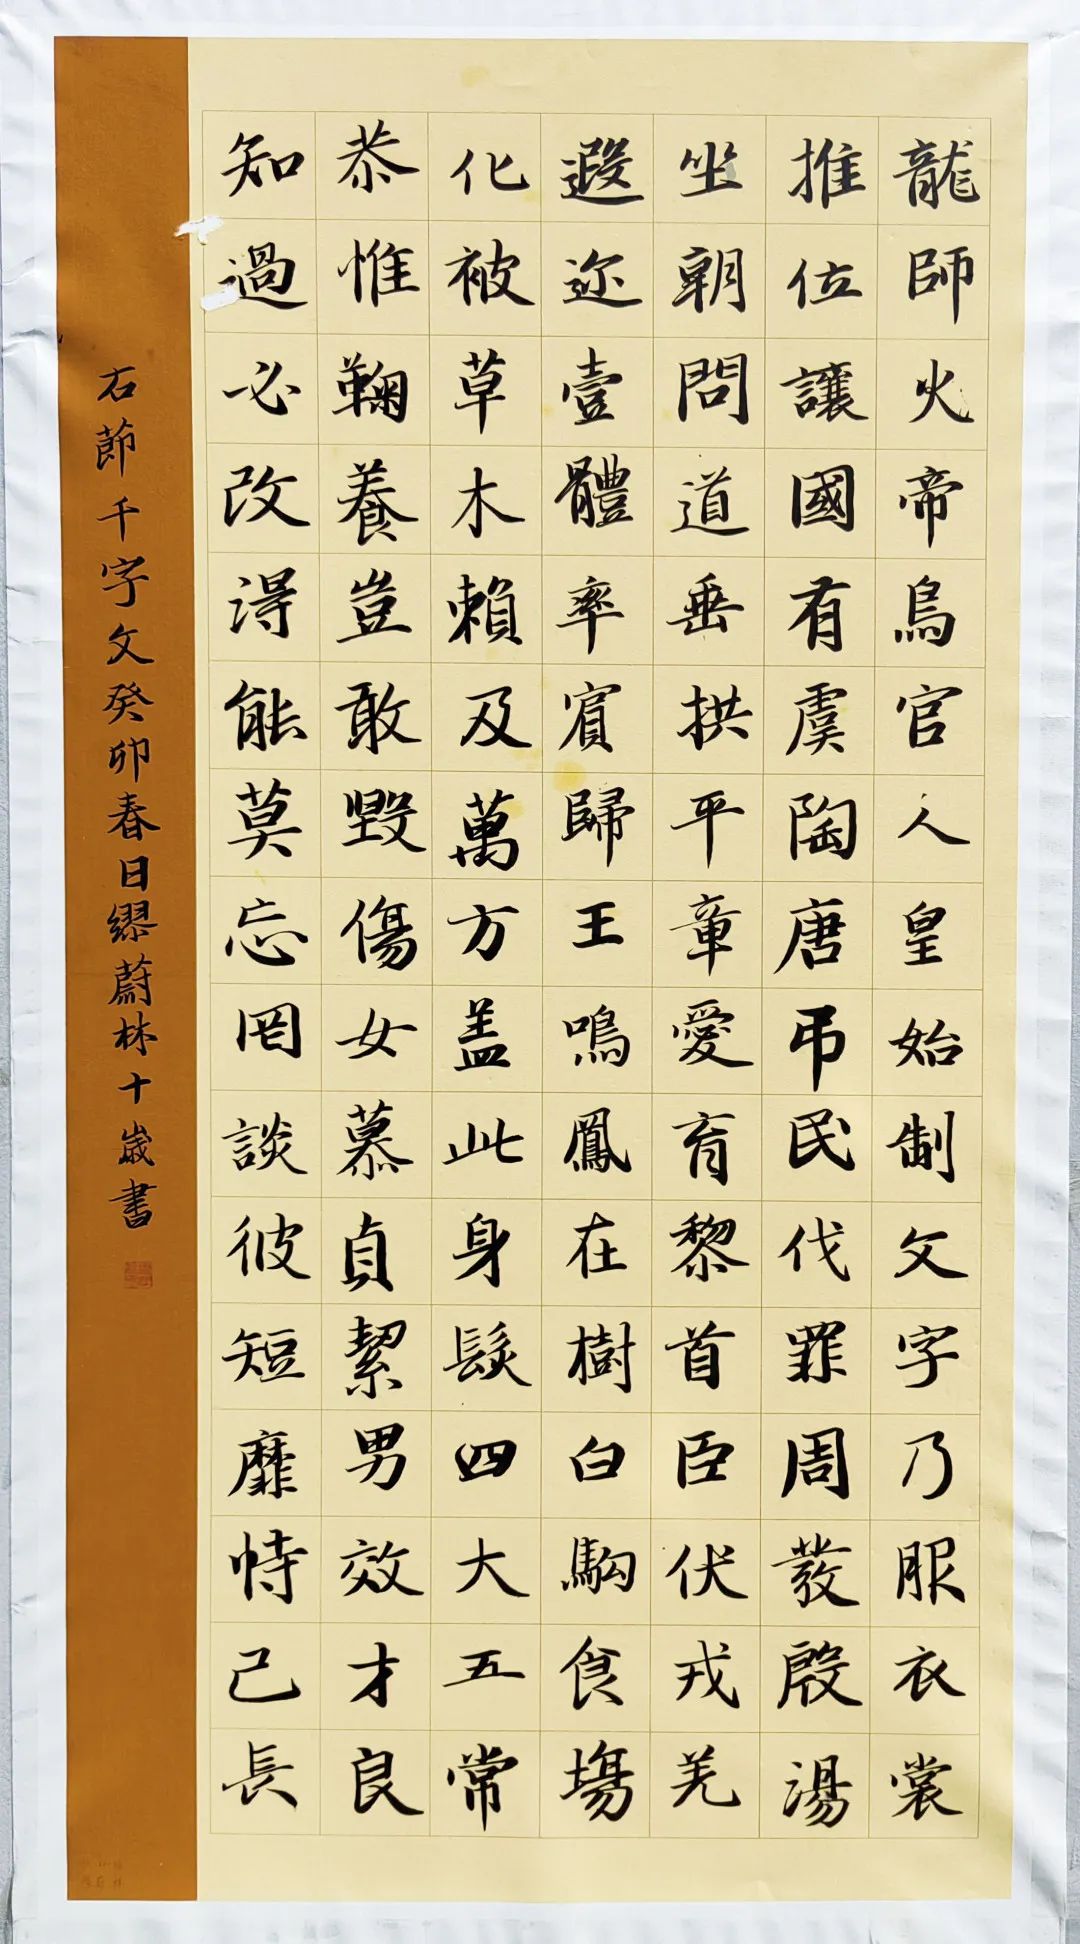 龍師火帝鳥官人皇始制文字乃服衣裳
推位讓國有虞陶唐弔民伐罪周發殷湯
坐朝問道垂拱平章愛育黎首臣伏戎羌
遐迩壹體率賔歸王鳴鳳在樹白駒食場
化被草木賴及萬方盖此身髮四大五常
恭惟鞠養豈敢毀傷女慕貞絜男效才良
知過必改得能莫忘罔談彼短靡恃己長
石節千字文癸卯春日繆蔚林十歲書